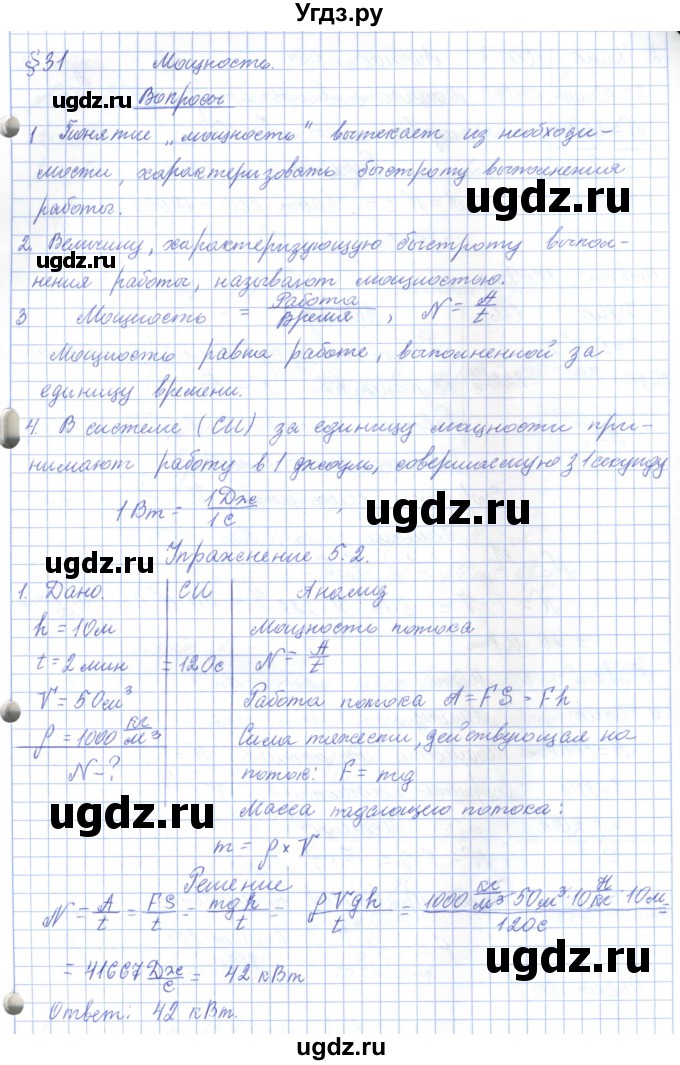 Угдз.ру
§31 Мощность.
ugdz.ru
Вопросы
1 Понятие „мощность" вытекает из необходи-
мости, характеризовать быстроту выполнения
работы.
ugdz.ru
2. Величину, характеризующую быстроту выпол-
ugdz.ru
нения работы, называют мощностью.
3 Мощность = Работа / Время, N = A/t.
Мощность равна работе, выполненной за
единицу времени.
4. В системе (СИ) за единицу мощности при-
нимают работу в 1 джоуль, совершаемую з 1 секунду
1 Вт = 1 Дж / 1 с
ugdz.ru
ugdz.ru
Упражнение 5.2.
1. Дано. СИ Анализ
h = 10 м Мощность потока
t = 2 мин = 120 с N = A/t
ugdz.ru
V = 50 см³ Работа потока A = FS = Fh
ρ = 1000 кг/м³ Сила тяжести, действующая на
N - ? поток: F = mg
ugdz.ru
ugdz.ru
Масса падающего потока:
m = ρ × V
Решение
N = A/t = FS/t = mgh/t = ρVgh/t = 1000 кг/м³ · 50 м³ · 10 Н/кг · 10 м / 120 с =
ugdz.ru
= 41667 Дж/с = 42 кВт
ugdz.ru
Ответ: 42 кВт.
ugdz.ru